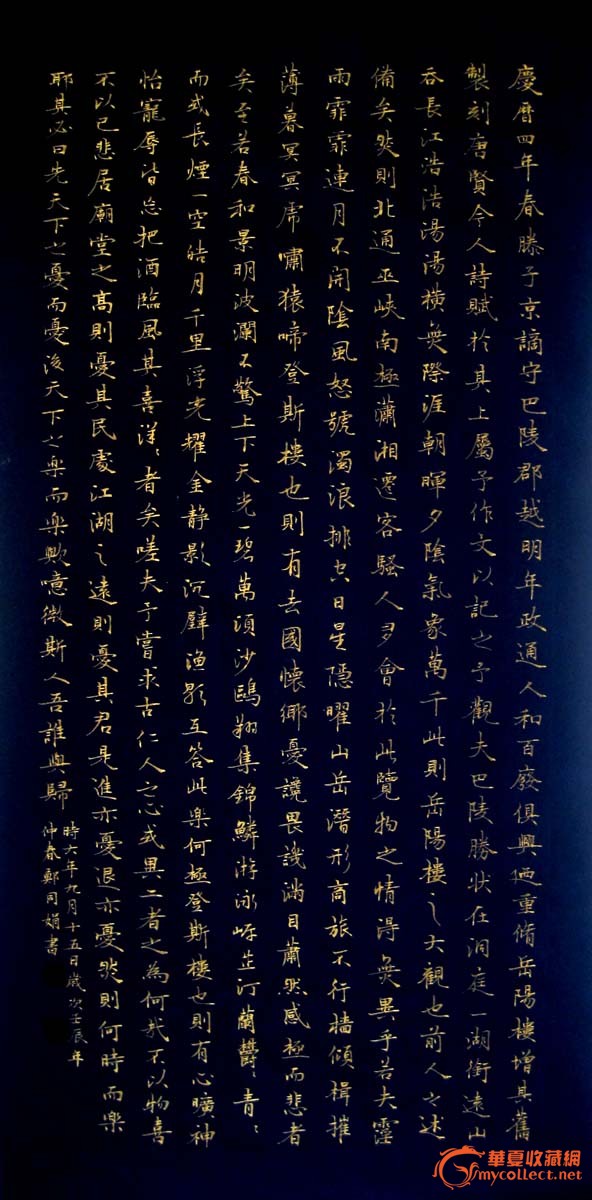 慶曆四年春滕子京謫守巴陵郡越明年政通人和百廢俱興迺重脩岳陽樓增其舊
製刻唐賢今人詩賦於其上屬予作文以記之予觀夫巴陵勝狀在洞庭一湖銜遠山
吞長江浩浩湯湯橫無際涯朝暉夕陰氣象萬千此則岳陽樓之大觀也前人之述
備矣然則北通巫峽南極瀟湘遷客騷人多會於此覽物之情得無異乎若夫霪
雨霏霏連月不開陰風怒號濁浪排空日星隱曜山岳潛形商旅不行檣傾楫摧
薄暮冥冥虎嘯猿啼登斯樓也則有去國懷鄉憂讒畏譏滿目蕭然感極而悲者
矣至若春和景明波瀾不驚上下天光一碧萬頃沙鷗翔集錦鱗游泳岸芷汀蘭鬱、青、
而或長煙一空皓月千里浮光耀金静影沉璧漁歌互答此樂何極登斯樓也則有心曠神
怡寵辱皆忘把酒臨風其喜洋、者矣嗟夫予嘗求古仁人之心或異二者之為何哉不以物喜
不以己悲居廟堂之高則憂其民處江湖之遠則憂其君是進亦憂退亦憂然則何時而樂
耶其必曰先天下之憂而憂後天下之樂而樂歟噫微斯人吾誰與歸
時六年九月十五日歲次壬辰年
仲春鄭同娟書
華夏收藏網
mycollect.net